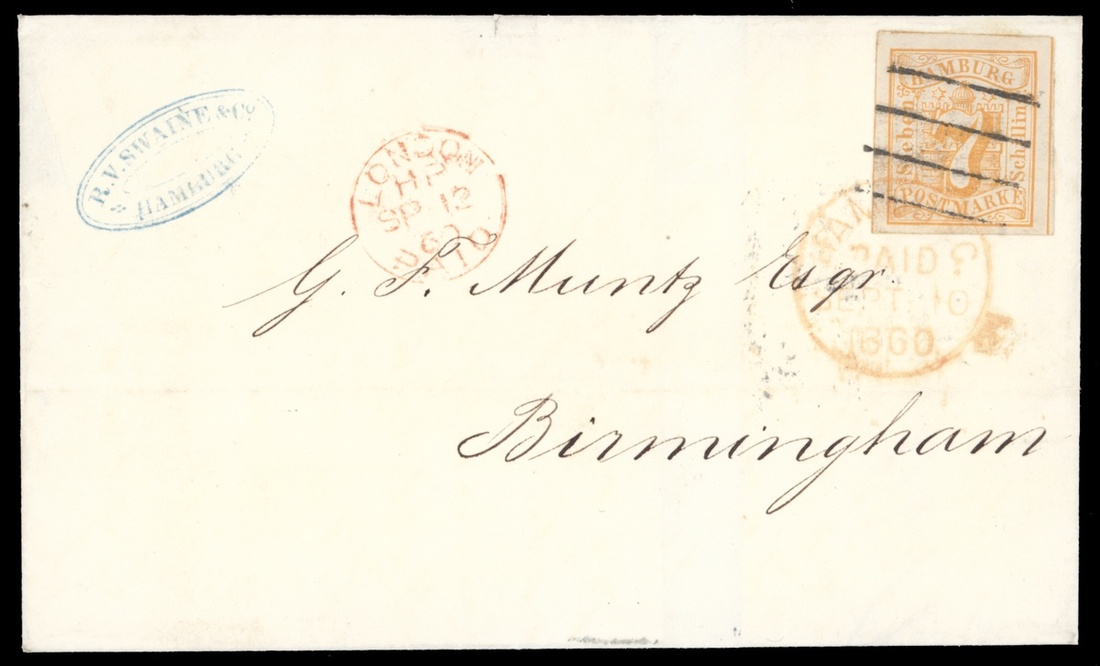 R. V. SWAINE & Co.
HAMBURG
LONDON
SP 12
60
PAID
HAMBURG
Sieben
7
Schilling
POSTMARKE
PAID
SEPT 10
1860
G. F. Muntz Esqr.
Birmingham